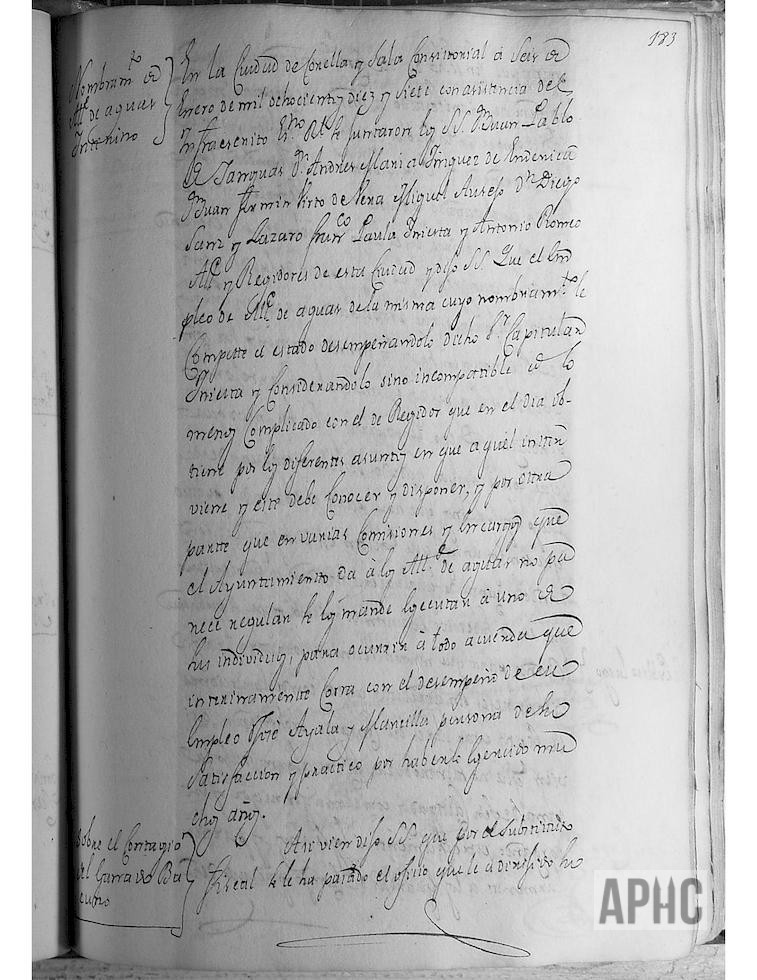 183
Nombram.to de
Alc.e de aguas
Interino
En la Ciudad de Corella y Sala Consistorial á Seis de
Enero de mil ochocientos diez y siete con asistencia del
Infraescrito Es.no R.l se juntaron los SS. D.n Juan Pablo
de Sanguas D.n Andres Maria Iñiguez de
D.n Juan Fermin Virto de Vera Miguel D.n Diego
Sanz y Lazaro Fran.co Paula Iniesta y Antonio Romeo
Alc.e y Regidores de esta Ciudad y dijo SS. Que el Em
pleo de Alc.e de aguas de la misma cuyo nombram.to le
Compette á estado desempeñandolo dicho S.r Capitular
Iniesta y Considerandolo sino incompattible á lo
menos Complicado con el de Regidor que en el dia ob-
tiene por los diferentes asuntos en que aquel inter
viene y este debe Conocer y disponer, y por otra
partte que en varias Comisiones y Encargos que
el Ayuntamiento da á los Alc.e de aguas no pa
rece regular se los mande Egecutar á uno de
sus individuos, para ocurrir á todo acuerda que
interinamente Corra con el desempeño de ese
Empleo José Ayala y Mancilla persona de su
Satisfaccion y practico por haberlo Egercido mu
chos años.
Sobre el Contagio
del Ganado Ba
cuno
Asi vien dijo SS. que por el Substituto
Fiscal se le ha pasado el oficio que le á dirijido su
APHC